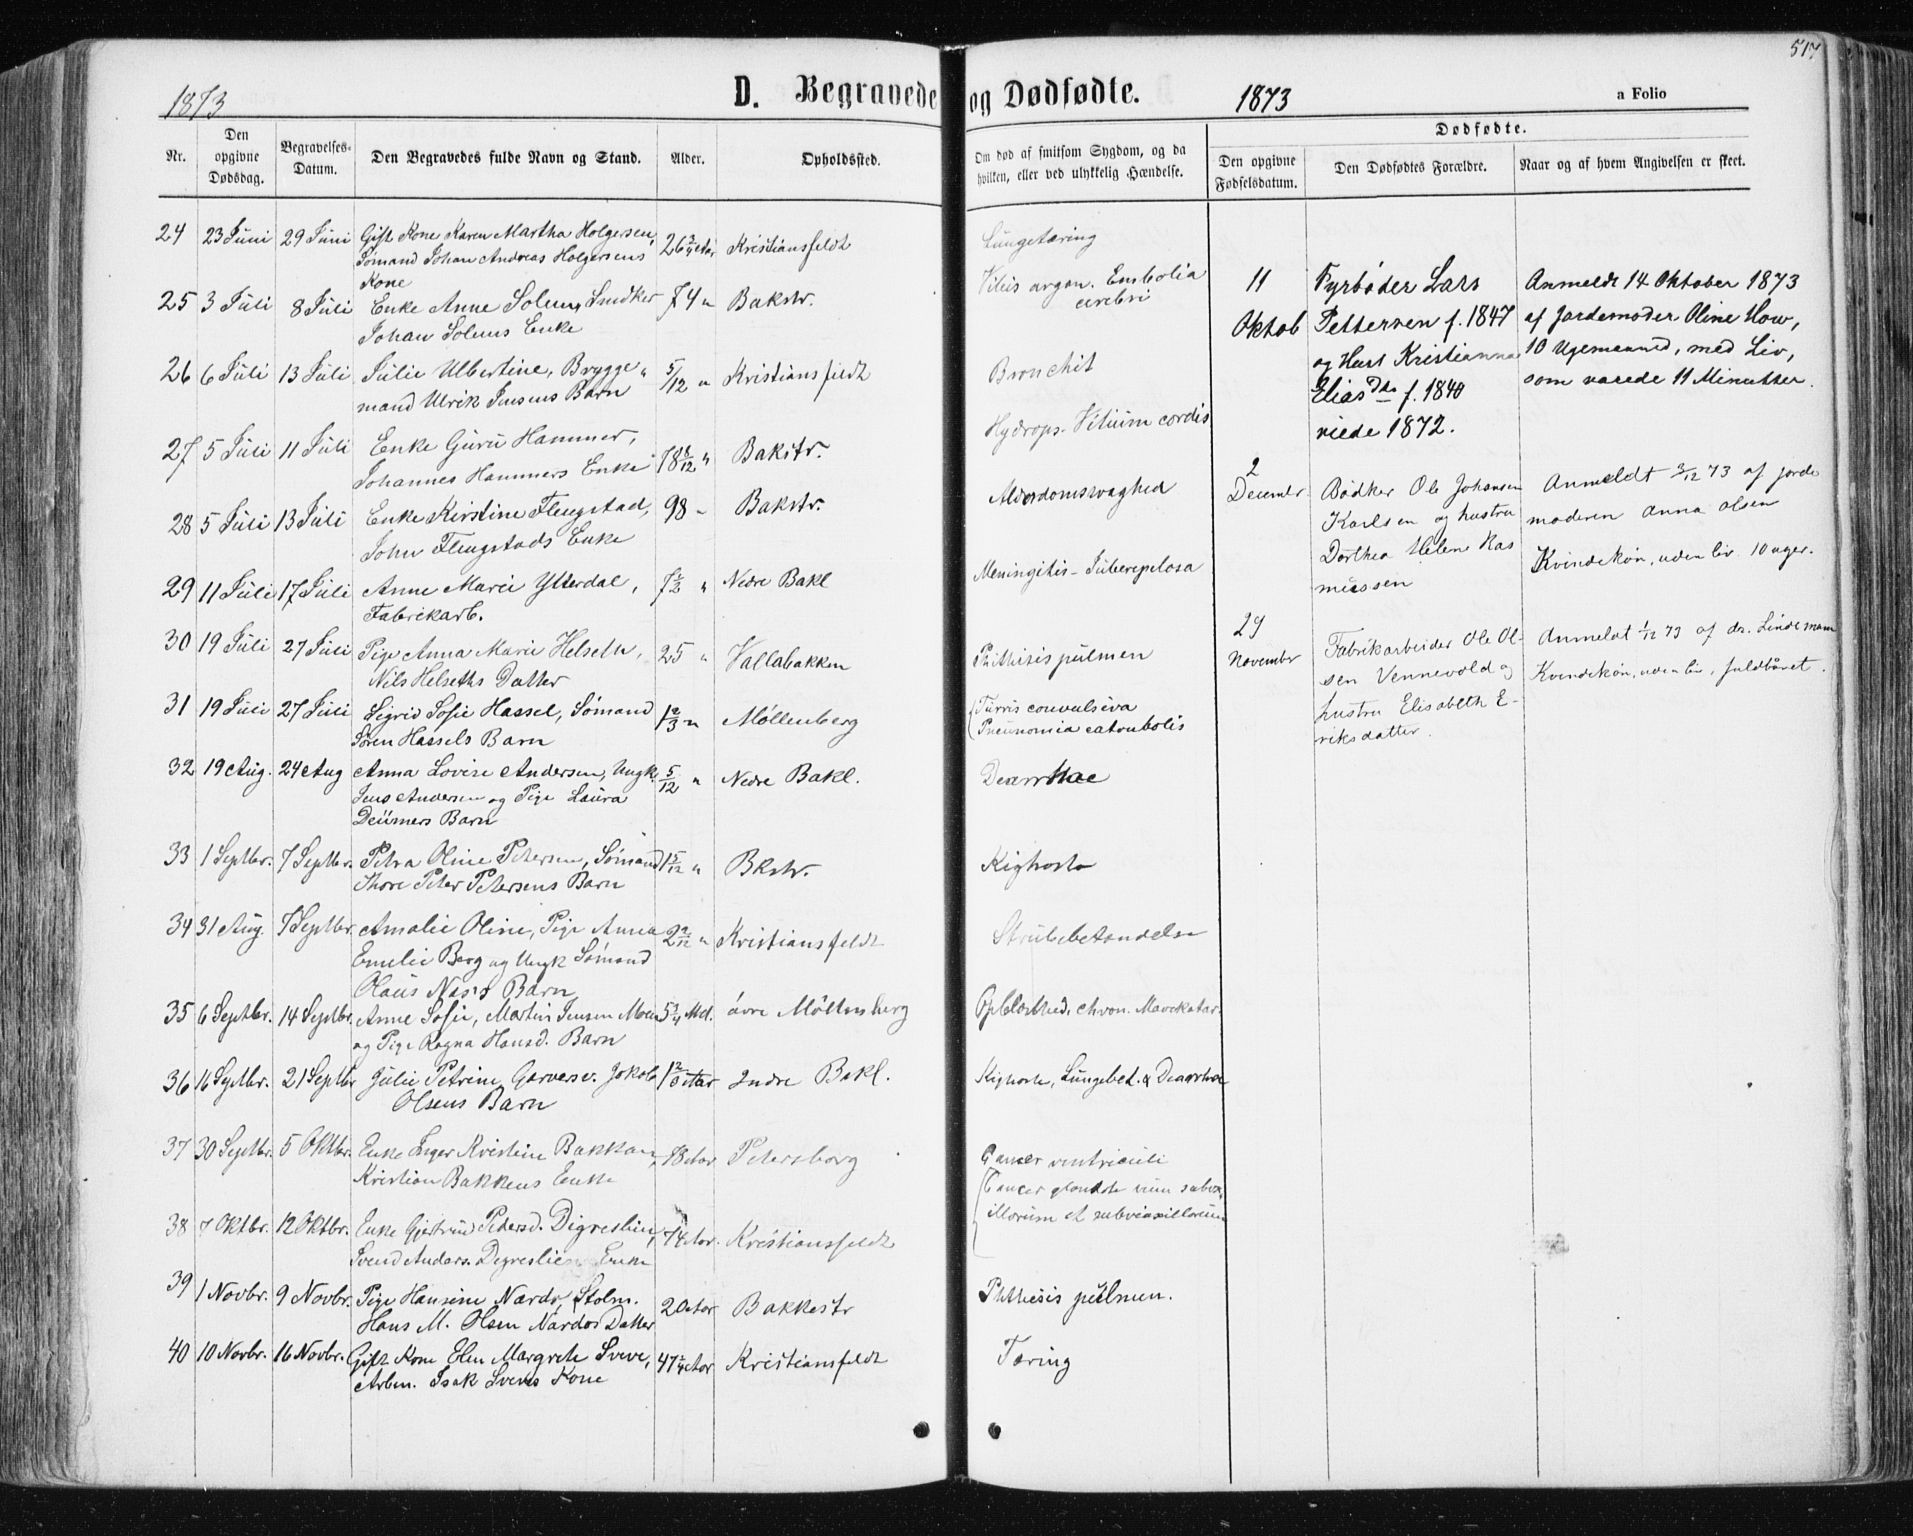 517
1873
D. Begravede og Dødfødte.
1873
a Folio
Nr.
Den opgivne Dødsdag.
Begravelses-Datum.
Den Begravedes fulde Navn og Stand.
Alder.
Opholdssted.
Om død af smitsom Sygdom, og da hvilken, eller ved ulykkelig Hændelse.
Dødfødte.
Den opgivne Fødselsdatum.
Den Dødfødtes Forældre.
Naar og af hvem Angivelsen er skeet.
24 23 Juni 29 Juni Gift Kone Karen Martha Holgersen, 26 3/4 Aar Kristiansfeldt Lungetæring
Sømand Johan Andreas Holgersens
Kone
25 3 Juli 8 Juli Enke Anne Solem, Snedker 74 " Bakstr. Vitius organ. Embolia
Johan Solems Enke cerebri
26 6 Juli 13 Juli Julie Albertine, Brygge- 5/12 " Kristiansfeldt Bronchit
mand Ulrik Jensens Barn
27 5 Juli 11 Juli Enke Guru Hammer, 78 8/12 " Bakstr. Hydrops- Vitium cordis
Johannes Hammers Enke
28 5 Juli 13 Juli Enke Kirstine Flengstad, 98 " Bakstr. Alderdomssvaghed
John Flengstads Enke
29 11 Juli 17 Juli Anne Marie Ytterdal, 7 1/2 " Nedre Bakl Meningitis-Tuberculosa
Fabrikarb.
30 19 Juli 27 Juli Pige Anna Marie Helseth, 25 " Vallabakken Phthisis pulmen
Nils Helseths Datter
31 19 Juli 27 Juli Sigrid Sofie Hassel, Sømand 1 2/3 " Møllenberg Tussis convulsiva
Søren Hassels Barn Pneunomia catarrhalis
32 19 Aug. 24 Aug Anna Lovise Andersen, Ungk. 5/12 " Nedre Bakl. Dearrhae
Jens Andersen og Pige Laura
Deümers Barn
33 1 Septbr. 7 Septbr. Petra Oline Petersen, Sømand 1 5/12 " Bkstr. Kighoste
Thore Peter Petersens Barn
34 31 Aug. 7 Septbr. Amalie Oline, Pige Anna 2 2/12 " Kristiansfeldt Strubebetændelse
Emelie Berg og Ungk Sømand
Olaus Næss Barn
35 6 Septbr. 14 Septbr. Anne Sofie, Martin Jensen Moen 5 3/4 Md. øvre Möllenberg chron. Mavekatar.
og Pige Ragna Hansd. Barn
36 16 Septbr. 21 Septbr Julie Petrine, Garversv. Jakob 1 2/3 Aar Indre Bakl. Kighoste, Lungebet. & Dearrhoe
Olsens Barn
37 30 Septbr. 5 Oktbr. Enke Inger Kristine Bakkan, 78 Aar Petersborg Cancer ventriculi
Kristian Bakkens Enke
38 7 Oktbr. 12 Oktbr. Enke Gjertrud Pedersd. Digreslien, 74 Aar. Kristiansfeldt Cancer
Svend Anders. Digreslien Enke
39 1 Novbr. 9 Novbr. Pige Hansine Nardo, Stolm. 20 Aar Bakkestr Phthesis pulmen.
Hans M. Olsen Nardos Datter
40 10 Novbr. 16 Novbr. Gift Kone Elen Margrete Sveve, 47 1/4 Aar Kristiansfeldt Tæring
Arbm. Isak Sveves Kone
11 Oktob
Fyrbøder Lars
Pettersen f. 1847
og Hust Kristianna
Elias Dtr f. 1840
viede 1872.
Anmeldt 14 Oktober 1873
af Jordemoder Oline How,
10 Ugemaaned, med Liv,
som varede 11 Minutter.
2 Decembr.
Bødker Ole Johansen
Karlsen og hustru
Dorthea Helene Ras
mussen
Anmeldt 3/12 73 af jorde
moderen Anna Olsen
Kvindekøn, uden liv. 10 uger.
29 November
Fabrikarbeider Ole Ol-
sen Vennevold og
hustru Elisabeth E-
riksdatter.
Anmeldt 1/12 73 af dr. Lindeman
Kvindekøn, uden liv, fuldbåret.